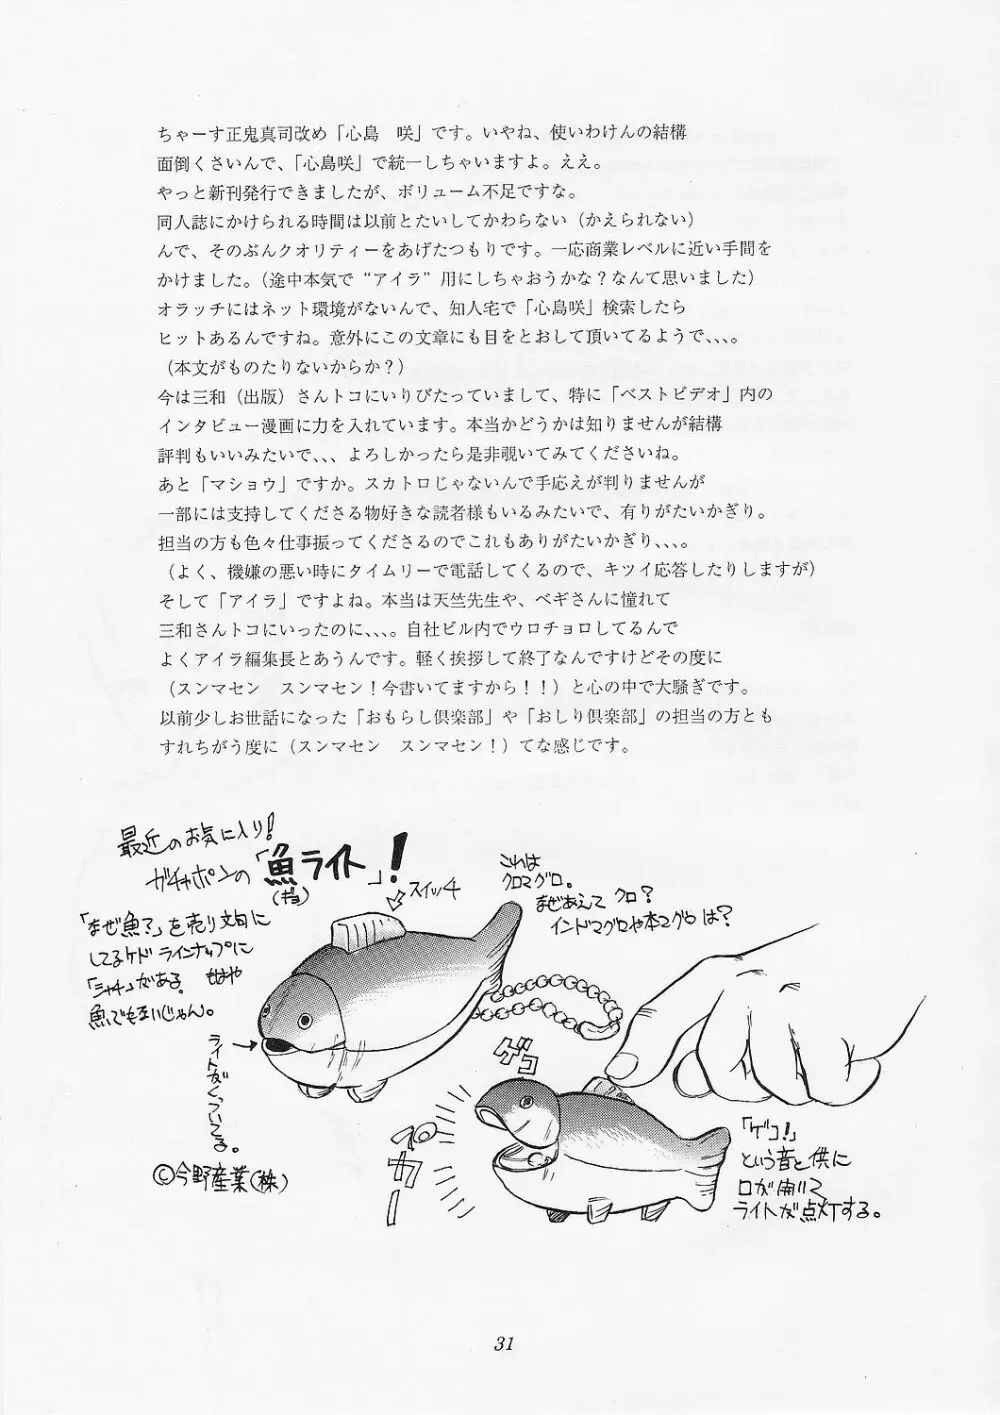 ちゃーす正鬼真司改め「心島　咲」です。いやね、使いわけんの結構
面倒くさいんで、「心島咲」で統一しちゃいますよ。ええ。
やっと新刊発行できましたが、ボリューム不足ですな。
同人誌にかけられる時間は以前とたいしてかわらない（かえられない）
んで、そのぶんクオリティーをあげたつもりです。一応商業レベルに近い手間を
かけました。（途中本気で“アイラ”用にしちゃおうかな？なんて思いました）
オラッチにはネット環境がないんで、知人宅で「心島咲」検索したら
ヒットあるんですね。意外にこの文章にも目をとおして頂いてるようで、、、。
（本文がものたりないからか？）
今は三和（出版）さんトコにいりびたっていまして、特に「ベストビデオ」内の
インタビュー漫画に力を入れています。本当かどうかは知りませんが結構
評判もいいみたいで、、、よろしかったら是非覗いてみてくださいね。
あと「マショウ」ですか。スカトロじゃないんで手応えが判りませんが
一部には支持してくださる物好きな読者様もいるみたいで、有りがたいかぎり。
担当の方も色々仕事振ってくださるのでこれもありがたいかぎり、、、。
（よく、機嫌の悪い時にタイムリーで電話してくるので、キツイ応答したりしますが）
そして「アイラ」ですよね。本当は天竺先生や、ベギさんに憧れて
三和さんトコにいったのに、、、。自社ビル内でウロチョロしてるんで
よくアイラ編集長とあうんです。軽く挨拶して終了なんですけどその度に
（スンマセン　スンマセン！今書いてますから！！）と心の中で大騒ぎです。
以前少しお世話になった「おもらし倶楽部」や「おしり倶楽部」の担当の方とも
すれちがう度に（スンマセン　スンマセン！）てな感じです。
最近のお気に入り！
ガチャポンの「魚ライト」！
（ギョ）
スイッチ
「なぜ魚？」を売り文句に
してるケド ラインナップに
「シャチ」がある。もはや
魚でもないじゃん。
これは
クロマグロ。
なぜあえて クロ？
インドマグロや本マグロは？
ライトがくっついてる。
©今野産業(株)
ゲコ
カー
「ゲコ！」
という音と供に
口が開いて
ライトが点灯する。
31